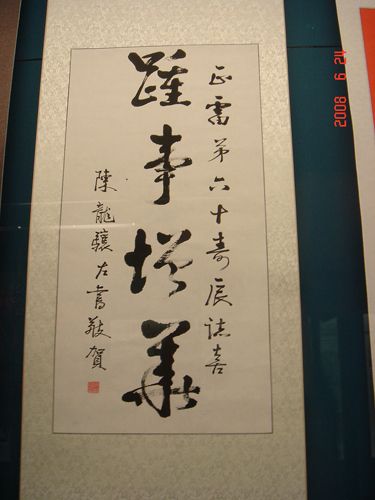 正雷弟六十壽辰誌喜
踵事增華
陳龍驤左書敬賀
2008 9 12